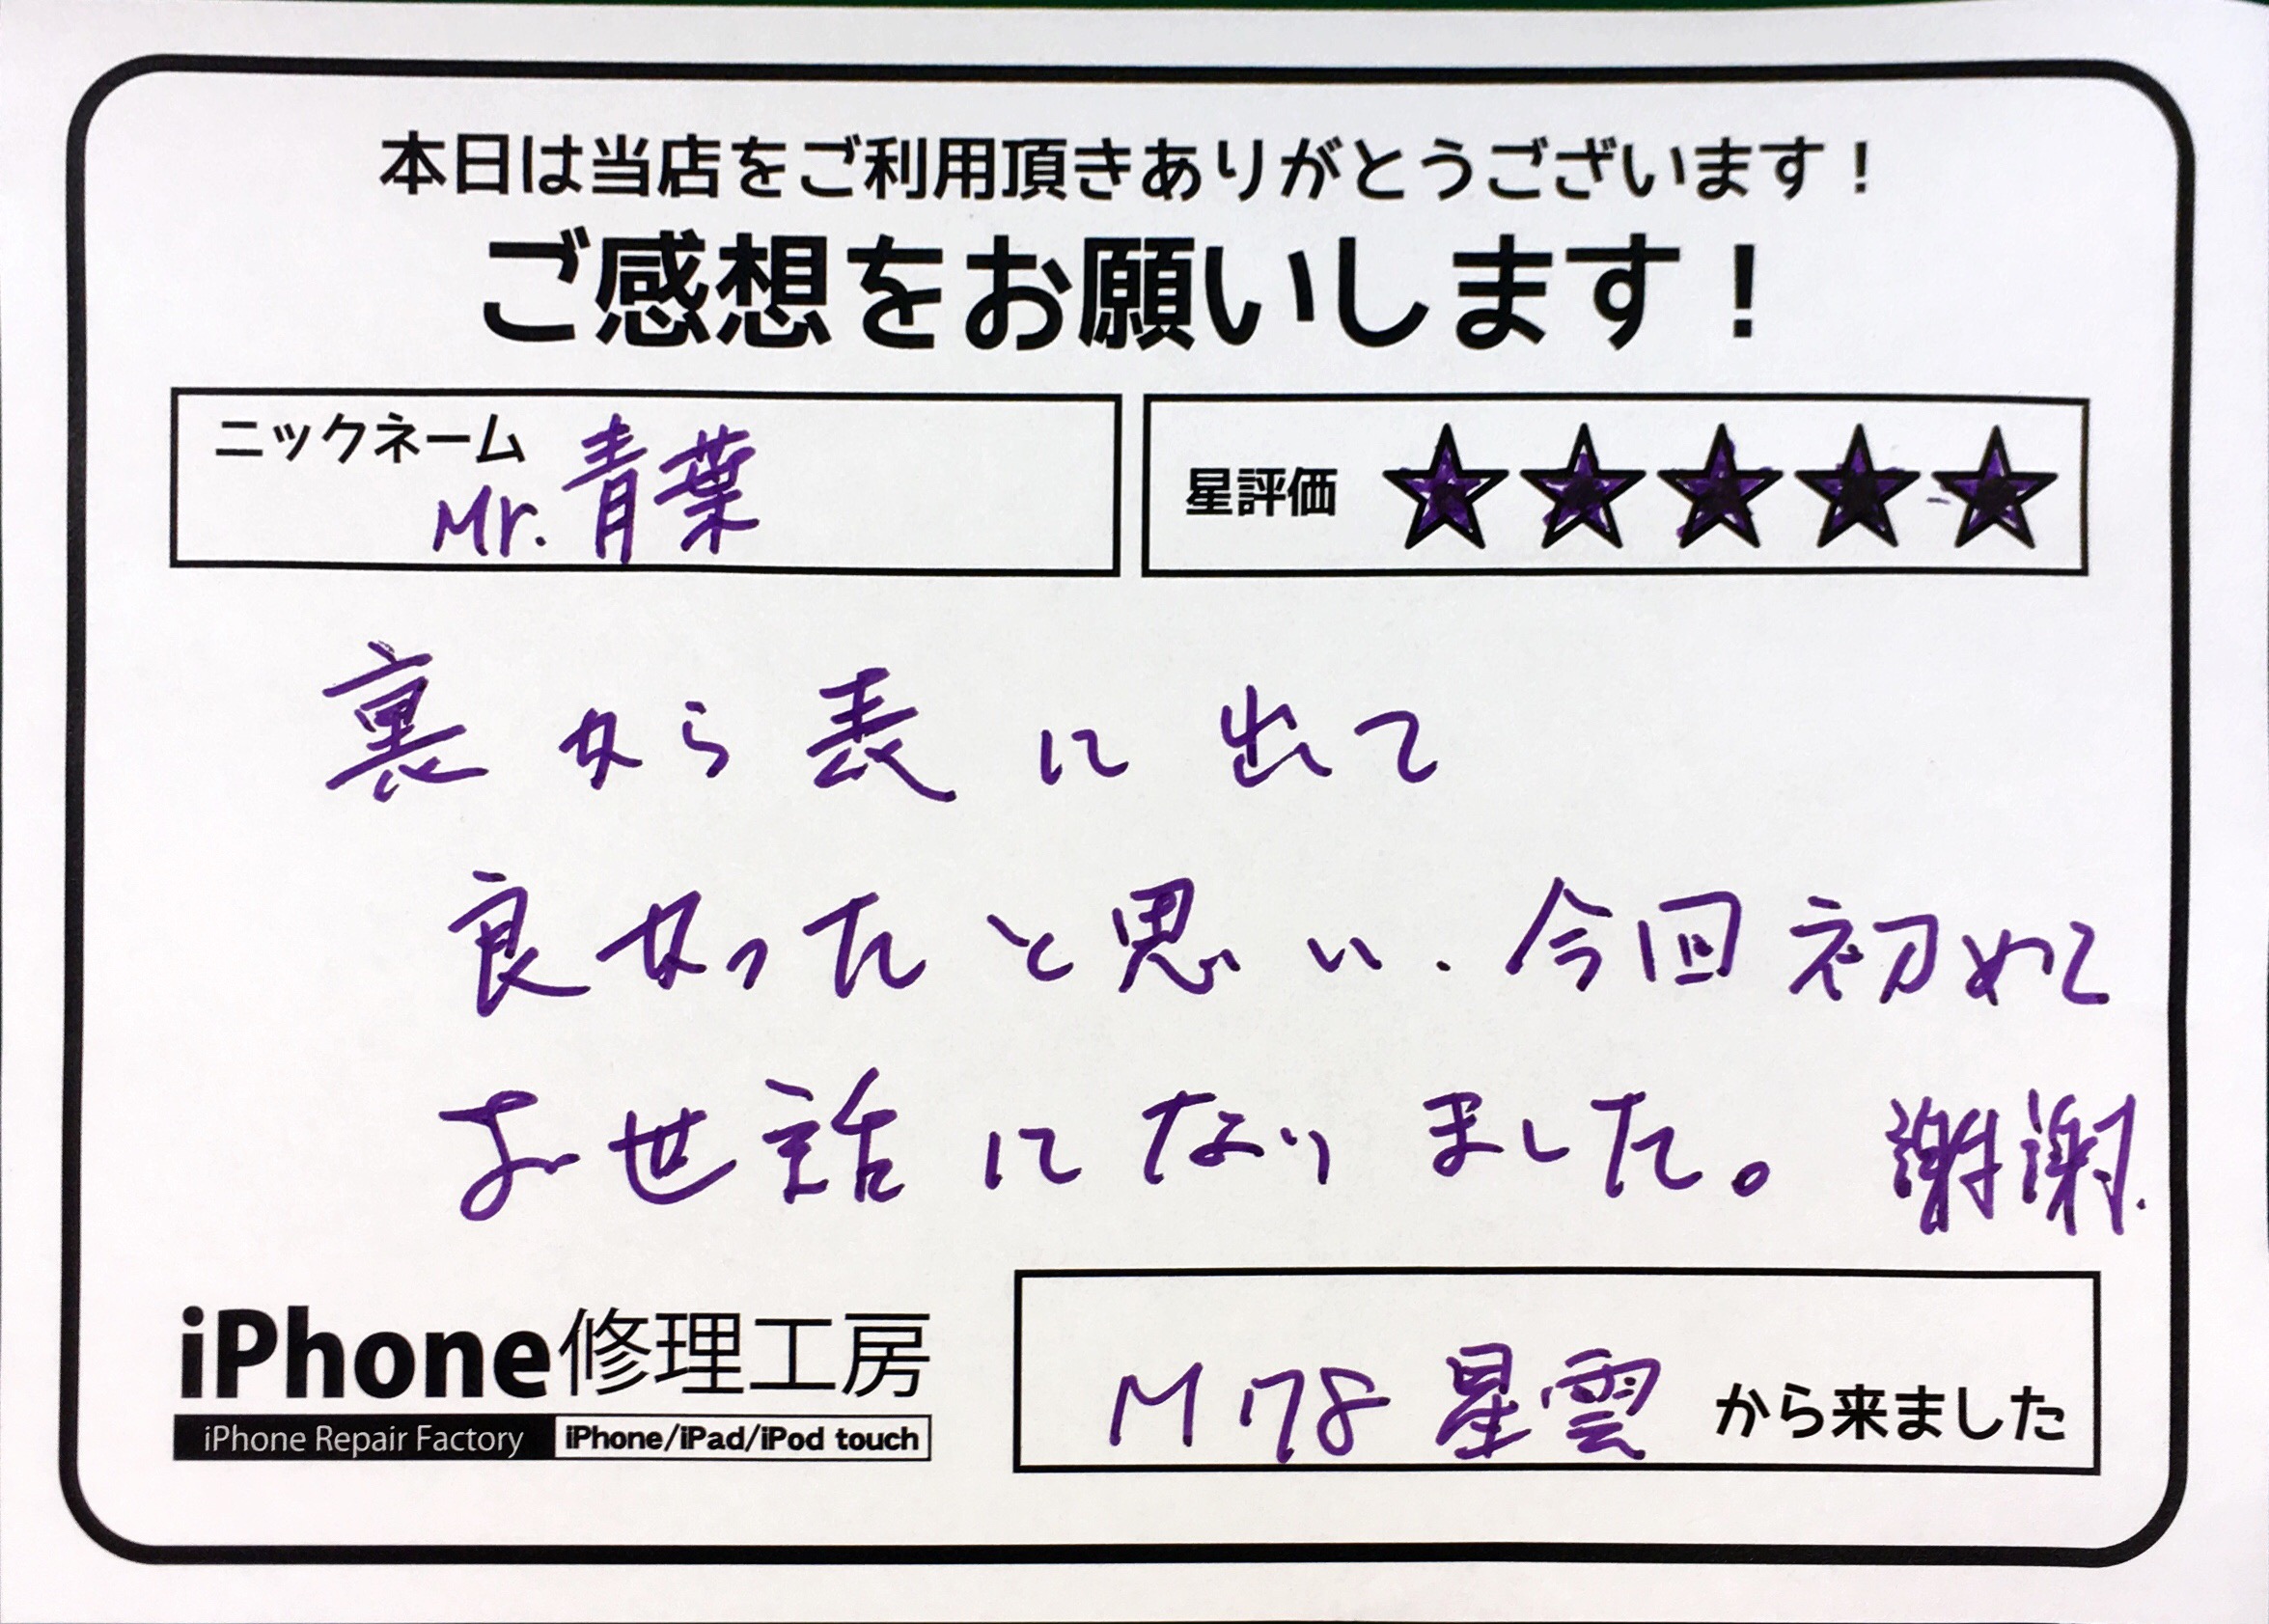 本日は当店をご利用頂きありがとうございます！
ご感想をお願いします！
ニックネーム
Mr.青葉
星評価 ★★★★★
裏から表に出て
良かったと思い、今回初めて
お世話になりました。謝謝.
iPhone修理工房
iPhone Repair Factory iPhone/iPad/iPod touch
M78星雲から来ました